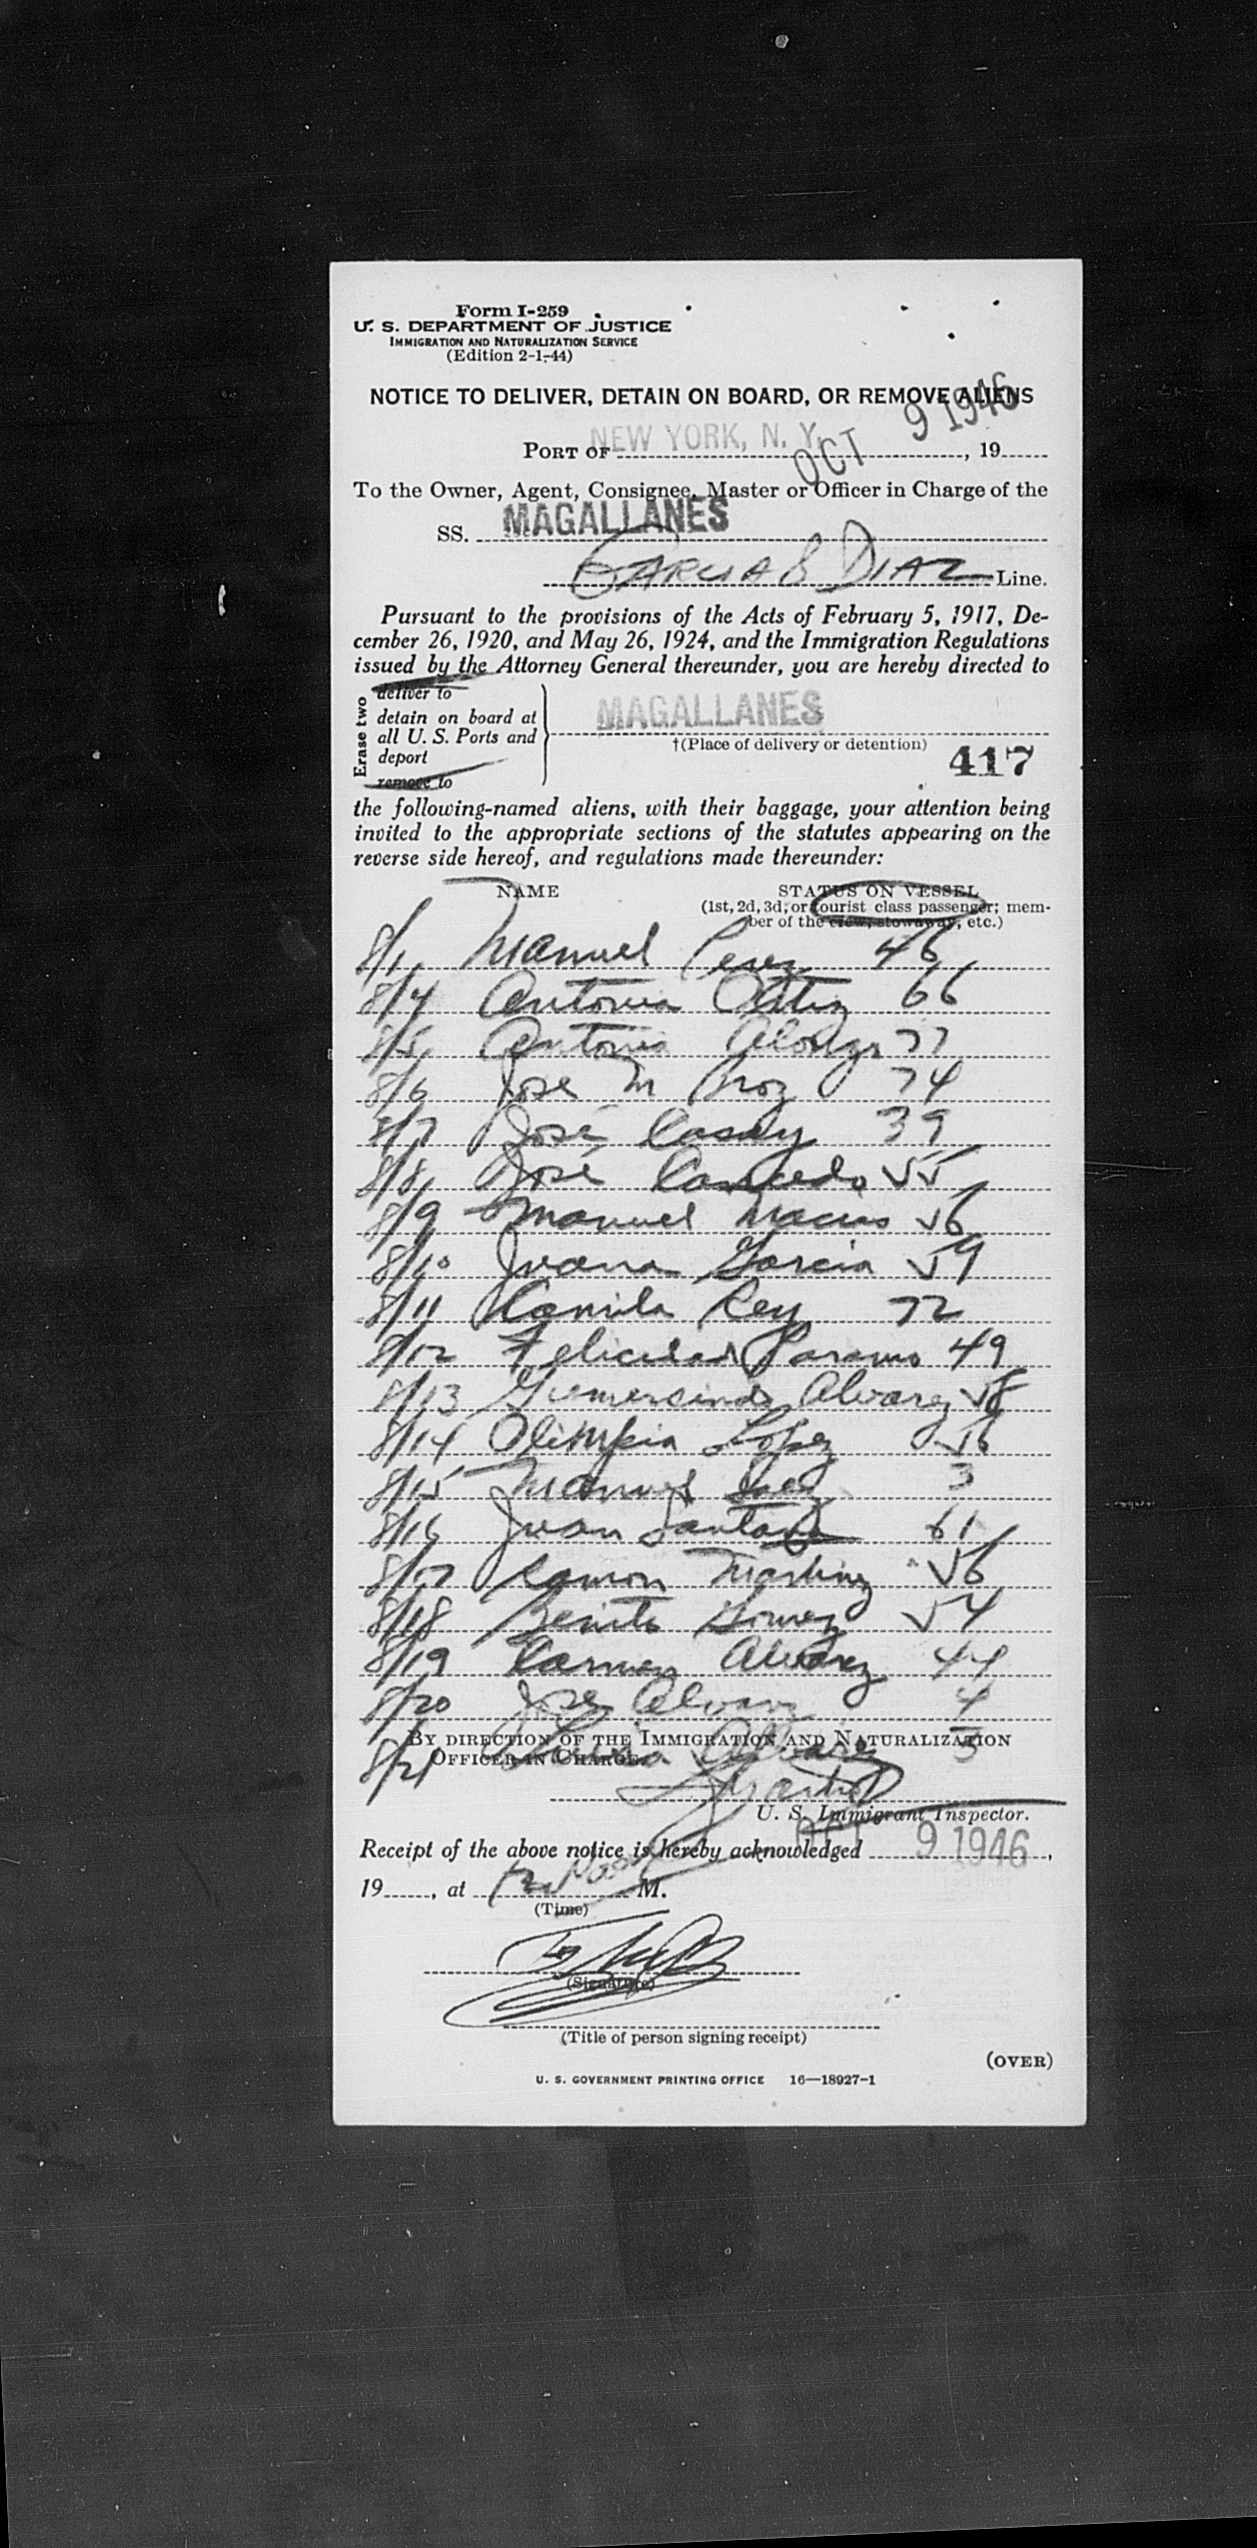 Form I-259
U. S. DEPARTMENT OF JUSTICE
IMMIGRATION AND NATURALIZATION SERVICE
(Edition 2-1-44)
NOTICE TO DELIVER, DETAIN ON BOARD, OR REMOVE ALIENS
PORT OF NEW YORK, N. Y. OCT 9 1946, 19
To the Owner, Agent, Consignee, Master or Officer in Charge of the
SS. MAGALLANES
GARCIA & DIAZ Line.
Pursuant to the provisions of the Acts of February 5, 1917, De-
cember 26, 1920, and May 26, 1924, and the Immigration Regulations
issued by the Attorney General thereunder, you are hereby directed to
Erase two
deliver to
detain on board at
all U. S. Ports and
deport
remove to
MAGALLANES
†(Place of delivery or detention)
417
the following-named aliens, with their baggage, your attention being
invited to the appropriate sections of the statutes appearing on the
reverse side hereof, and regulations made thereunder:
NAME STATUS ON VESSEL
(1st, 2d, 3d, or tourist class passenger; mem-
ber of the crew, stowaway, etc.)
8/1 Manuel Perez 46
8/4 Antonia Ortiz 66
8/5 Antonio Alonzo 77
8/6 Jose M 74
8/7 José 39
8/8 José 55
8/9 Manuel Macias 56
8/10 Juana Garcia 59
8/11 Camila Rey 72
8/12 Felicidad Paramo 49
8/13 Gumersindo Alvarez 58
8/14 Olimpia Lopez 56
8/15 Manuel 3
8/16 Juan 61
8/17 Ramon Martinez 56
8/18 Benito Gomez 54
8/19 Carmen Alvarez 44
8/20 Jose Alvarez 4
8/21 Alvarez 3
BY DIRECTION OF THE IMMIGRATION AND NATURALIZATION
OFFICER IN CHARGE.
U. S. Immigrant Inspector.
Receipt of the above notice is hereby acknowledged OCT 9 1946,
19, at 12 Noon M.
(Time)
(Signature)
(Title of person signing receipt)
(OVER)
U. S. GOVERNMENT PRINTING OFFICE 16—18927-1